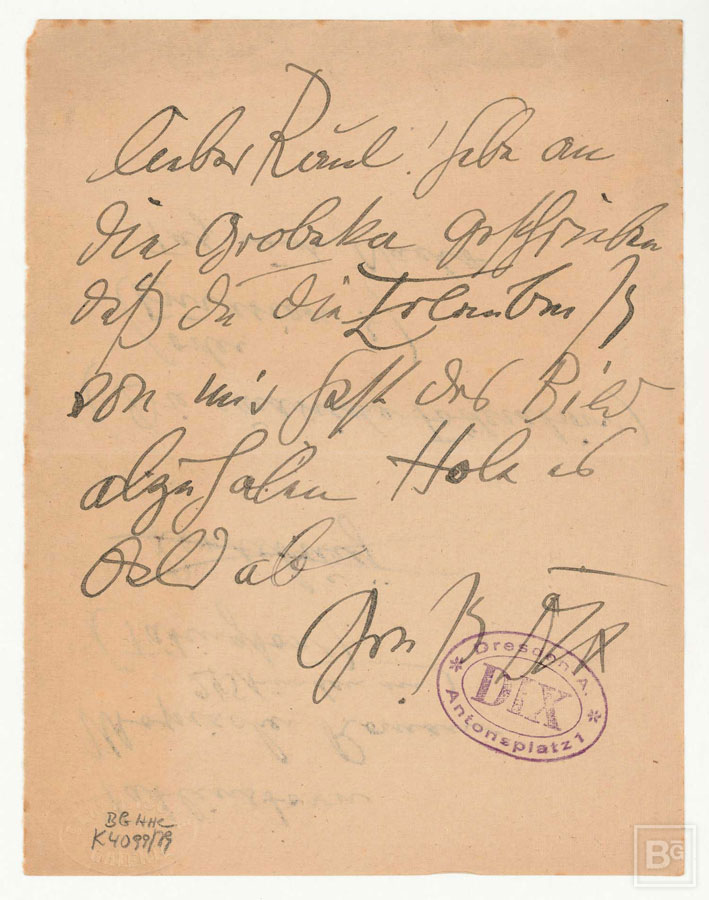 Lieber Raoul! habe an
die Grobeka geschrieben
daß du die Erlaubniß
von mir hast das Bild
abzuholen Hole es
bald ab
Gruß DIX
* Dresden A. *
DIX
Antonsplatz 1
BG HHC
K 4099/79
BG